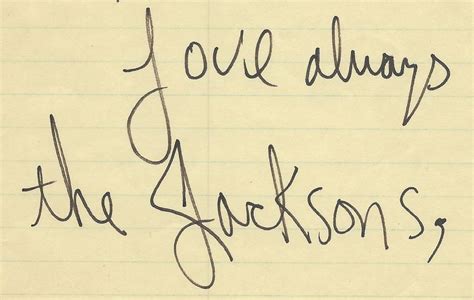 Love always
the Jacksons,